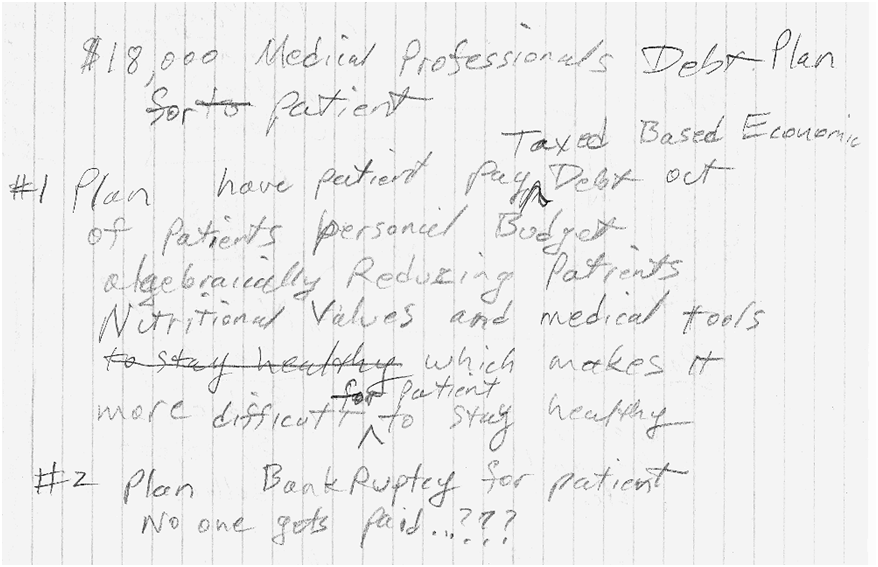 $18,000 Medical Professionals Debt Plan
for to patient
Taxed Based Economic
#1 Plan have patient pay Debt out
of Patients personal Budget
algebraically Reduzing Patients
Nutritional Values and medical tools
to stay healthy which makes it
for patient
more difficult to stay healthy
#2 Plan BankRuptcy for patient
No one gets paid...???